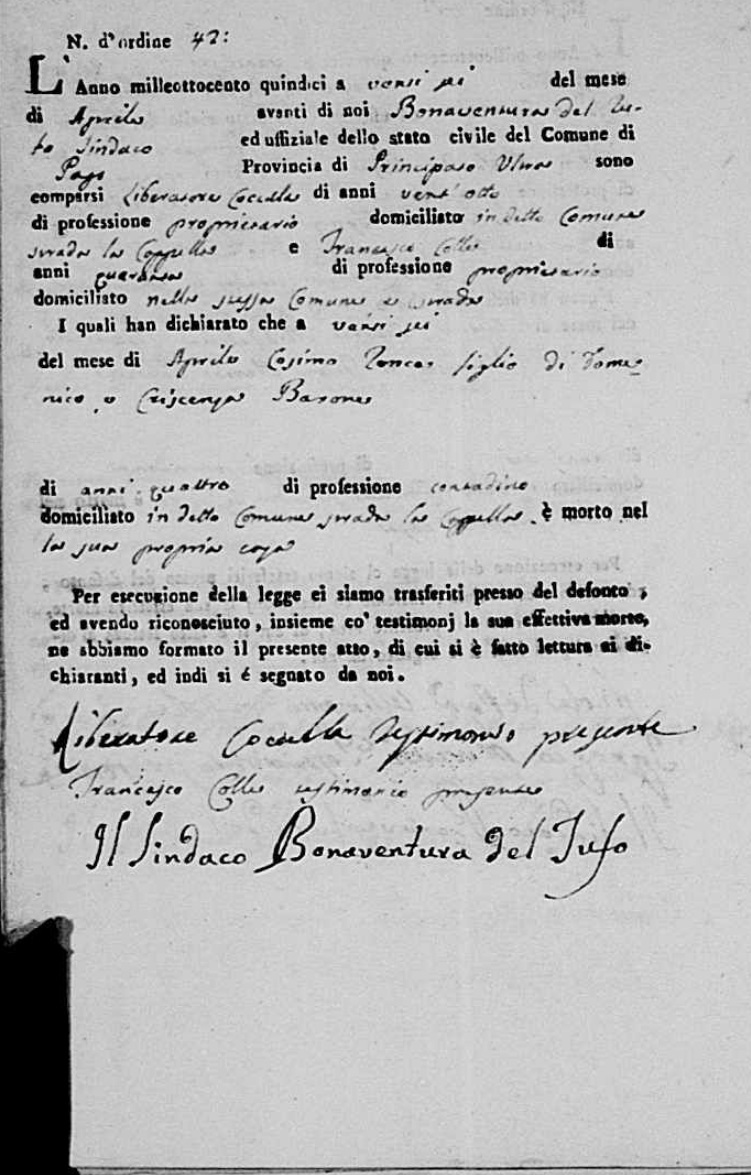 N. d'ordine 42:
L'Anno milleottocento quindici a venti sei del mese
di Aprile avanti di noi Bonaventura del Tu-
fo Sindaco ed uffiziale dello stato civile del Comune di
Pago Provincia di Principato Ultra sono
comparsi Liberatore Coccella di anni vent'otto
di professione proprietario domiciliato in detto Comune
strada la Cappella e Francesco Colle di
anni quaranta di professione proprietario
domiciliato nello stesso Comune e strada
I quali han dichiarato che a venti sei
del mese di Aprile Cosimo figlio di Dome-
nico e Barone
di anni quattro di professione contadino
domiciliato in detto Comune strada la Cappella è morto nel
la sua propria casa
Per esecuzione della legge ci siamo trasferiti presso del defonto ,
ed avendo riconosciuto, insieme co' testimonj la sua effettiva morte,
ne abbiamo formato il presente atto, di cui si è fatto lettura ai di-
chiaranti, ed indi si é segnato da noi.
Liberatore Coccella testimonio presente
Francesco Colle testimonio presente
Il Sindaco Bonaventura del Tufo